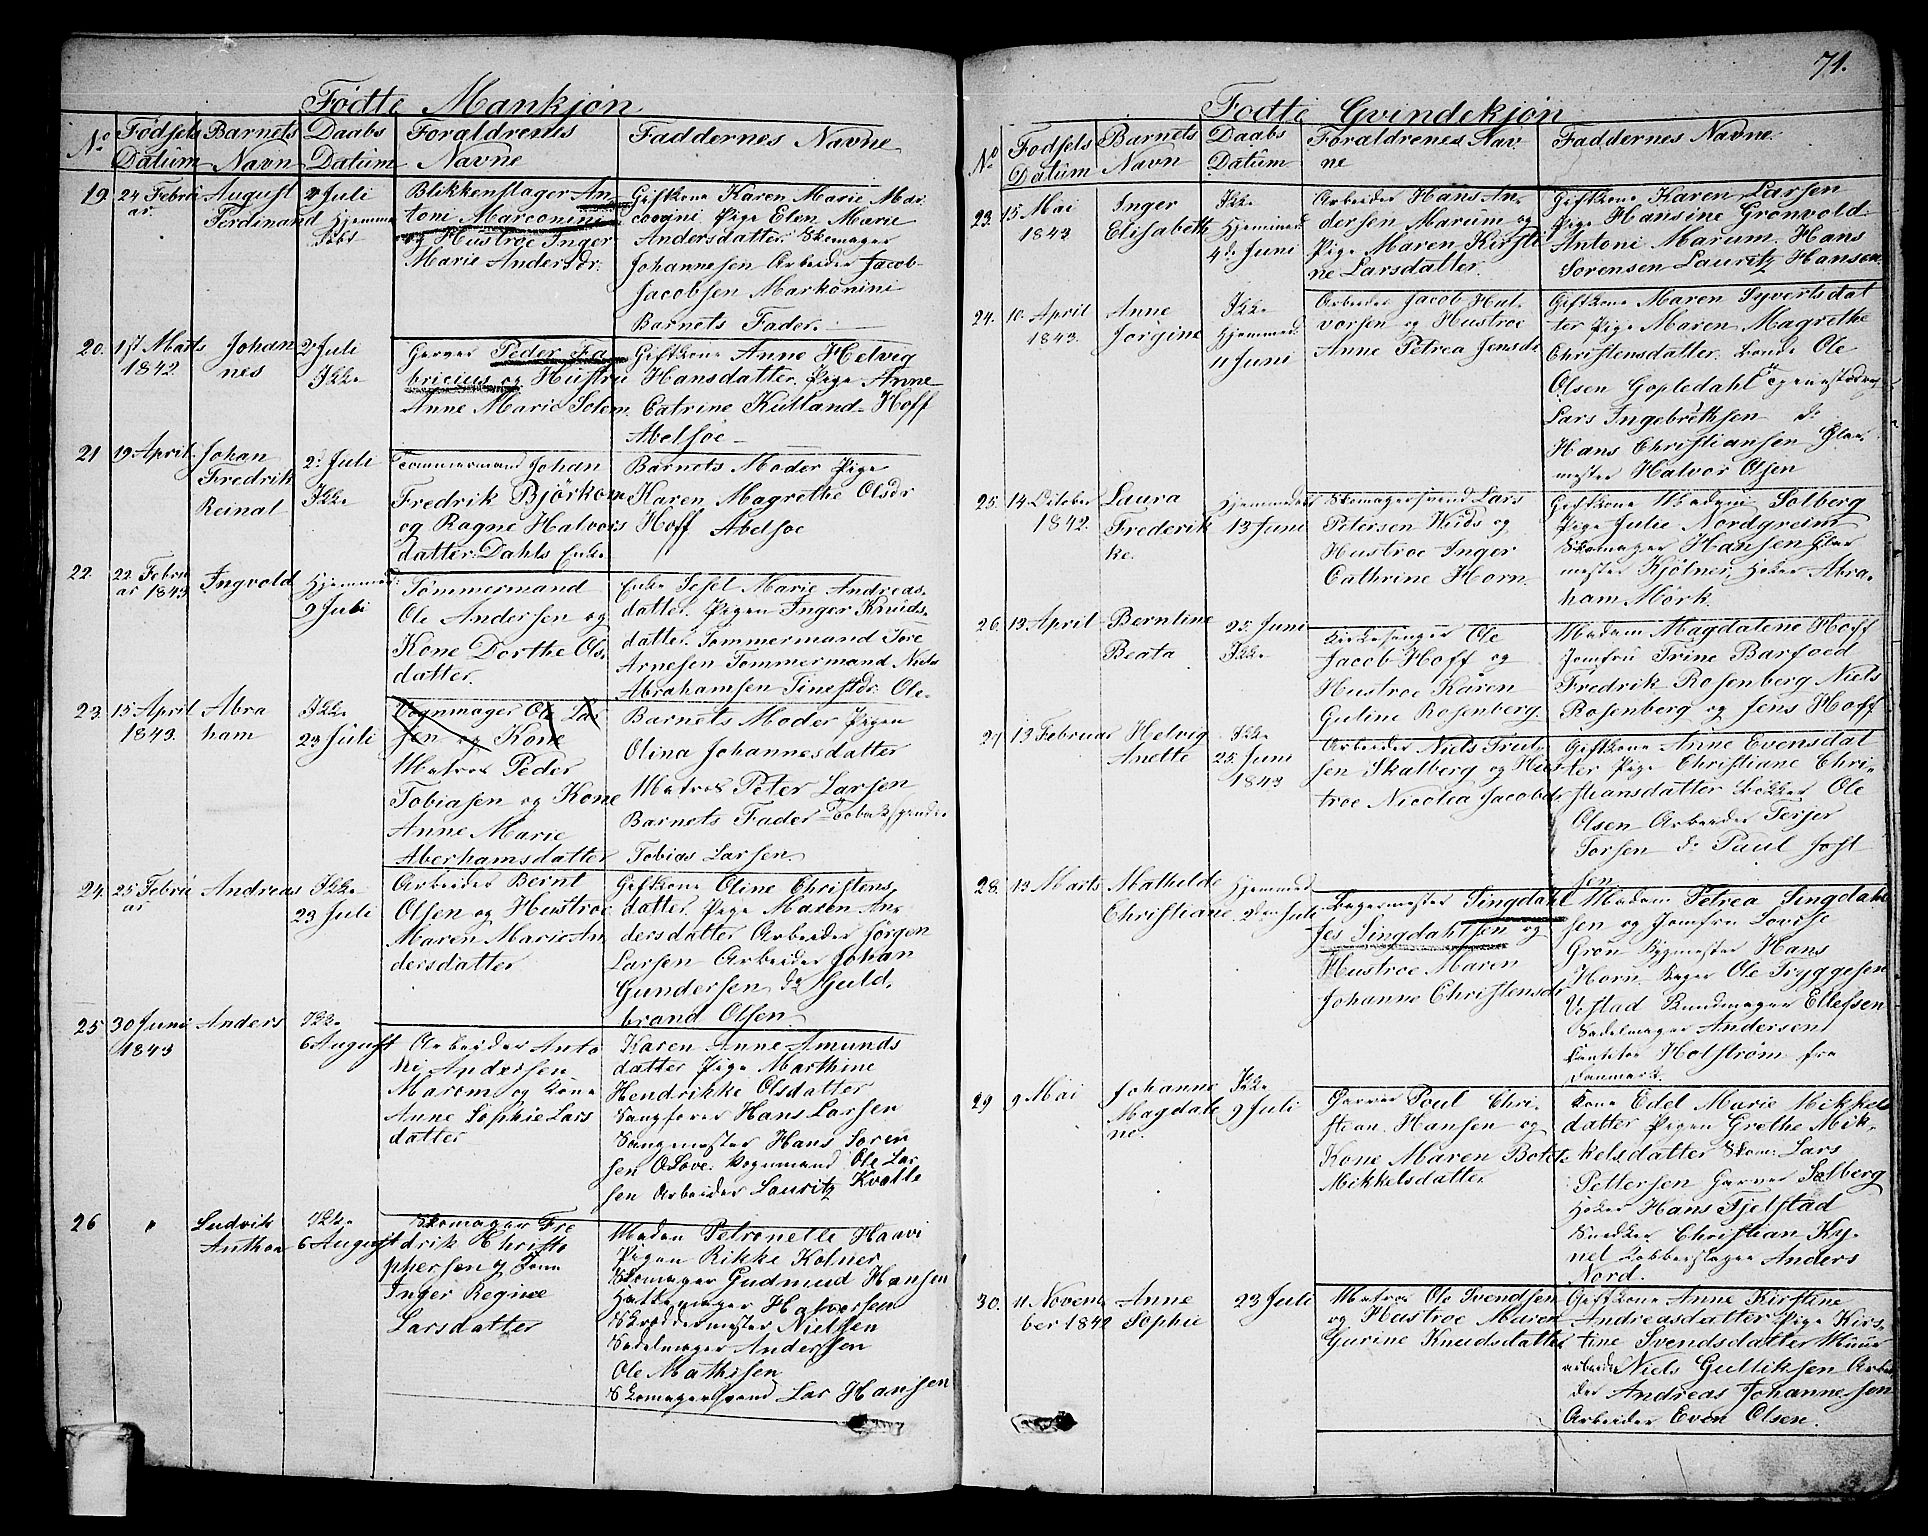 71.
Fødte Mankjøn
No
Fødsels Datum
Barnets Navn
Daabs Datum
Foraldrenes Navne
Faddernes Navne
19.
24 Februar
August Ferdinand
2 Juli Hjemme
Blikkenslager An-
toni Marconini
og Hustroe Inger
Marie Andersdr.
Giftkone Karen Marie Mar-
covni Pige Elen Marie
Andersdatter Skomager
Johannesen Arbeider Jacob
Jacobsen Markonini
Barnets Fader.
20.
1st Marts 1842
Johannes
2 Juli Ikke
Garver Peder Fa-
bricius og Hustru
Anne Marie Solem.
Giftkone Anne Helvig
Hansdatter. Pige Anne
Catrine Kulland- Hoff
Abelsøe
21
19 April
Johan Fredrik Reinal
2d Juli Ikke
Tømmermand Johan
Fredrik Bjørkom
og Ragne Halvors
datter. Dahls Enke
Barnets Moder Pige
Karen Magrethe Olsdr
Hoff Abelsoe
22.
22 Februar 1843
Ingvold
Hjemmed: 9 Juli
Tømmermand
Ole Andersen og
Kone Dorthe Ols
datter.
Enke Isel Marie Andreas-
datter. Pigen Inger Knuds-
datter. Tommermand Tore
Arnesen Tommermand Niels
Abrahamsen Tinestdr. Ole-
23.
15 April 1843.
Abraham
Ikke 23 Juli
Vognmager Ole Lar
sen og Kone
Matros Peder
Tobiasen og Kone
Anne Marie
Aberhamsdatter
Barnets Moder Pigen
Olina Johannesdatter
Matros Peter Larsen
Barnets Fader
Tobias Larsen
24.
25 Februar
Andreas
Ikke 23 Juli
Arbeider Bernt
Olsen og Hustroe
Maren Marie An
dersdatter
Giftkone Oline Christens
datter. Pige Maren An-
dersdatter Arbeider Jørgen
Larsen Arbeider Johan
Gundersen do Guld
brand Olsen
25
30 Juni 1843
Anders
Ikke 6 August
Arbeider Anto
ni Andersen
Marom og Kone
Anne Sophie Lars
datter
Karen Anne Amunds
datter Pige Marthine
Hendrikke Olsdatter
Hans Larsen
Hans Soren
sen Oslove. Vognmand Ole Lar
sen Arbeider Lauritz Kvalle
26
"
Ludvik Anthon
Ikke 6 August
Skomager Fre
drik Christo
phersen og Kone
Inger Regine
Larsdatter
Madam Petronelle Haavi
Pigen Rikke Kolner
Skomager Gudmud Hansen
Hattemager Halvorsen
Skræddermester Nielssen
Sadelmager Anderssen
Ole Mathisen
Skomagersvend Lar Hansen
Fodte Qvindekjøn
No
Fodsels Datum
Barnets Navn
Daabs Datum
Foraldrenes Nav
ne
Faddernes Navne
23.
15 Mai 1843
Inger Elisabeth
Ikke Hjemmed 4de Juni
Arbeider Hans An-
dersen Mareim og
Pige Maren Kirsti
ne Larsdatter.
Giftkone Karen Larsen
Pige Hansine Gronvold
Antoni Marum. Hans
Sorensen Lauritz Hansen.
24.
10 April 1843.
Anne Jørgine
Ikke Hjemmed. 11 Juni
Arbeider Jacob Hal-
vorsen og Hustroe
Anne Petrea Jensdr
Giftkone Maren Syvertsdat
ter Pige Maren Magrethe
Christensdatter. Bonde Ole
Olsen Gopledahl
Lars Ingebrethsen do
Hans Christiansen Glar
mester Halvor Olsen
25.
14 October 1842.
Laura Frederikke.
Hjemmedøbt 13 Juni
Skomagersvend Lars
Petersen Kuds og
Hustroe Inger
Cathrine Horn.
Giftkone Madam Solberg
Pige Julie Nordgreim
Skomager Hansen Glar
mester Kjølner, Høker Abra-
ham Mork.
26.
12 April
Berntine Beata
25. Juni Ikke
Kirkesanger Ole
Jacob Hoff og
Hustroe Karen
Guline Rosenberg.
Madam Magdalene Hoff
Jomfru Trine Barfoed
Fredrik Rosenberg Niels
Rosenberg og Jens Hoff
27
13 Februar
Helvig Anette
Ikke 25. Juni 1843
Arbeider Niels Truls-
sen Skalberg og Hus-
troe Nicolea Jacobdr
Giftkone Anne Evensdat
ter Pige Christiane Chri-
stiansdatter Bøkker Ole
Olsen Arbeider Terjer
Torsen do Paul Jost
sen
28.
13 Marts
Mathilde Christiane
Hjemmed 2den Juli
Bagermester Singdahl
Jes Singdahlsen og
Hustroe Maren
Johanne Christensdr
Madam Petrea Singdahl
sen og Jomfru Lovise
Grøn Bygmester Hans
Horn. Bager Ole Tryggesen
Vestad Bundmager Ellefsen
Sadelmager Andersen
Holstrøm fra
Danmark.
29
9 Mai
Johanne Magdalene.
Ikke 9 Juli
Garver Poul Chri-
stian, Hansen og
Kone Maren Botet
Mikkelsdatter
Kone Edel Marie Mikkels
datter Pigen Grethe Mik-
kelsdatter Skom: Lars
Pettersen Garver Solberg
Høker Hans Fjelstad
Snedker Christian Ky-
nel Kobberslager Anders
Nord.
30.
11 November 1842
Anne Sophie
23 Juli
Matros Ole Svendsen
og Hustroe Maren
Gurine Knudsdatter
Giftkone Anne Kirstine
Andreasdatter Pige Kirs-
tine Svendsdatter Muur
arbeider Niels Gulliksen Arbei
der Andreas Johannesen
Arbeider Even Olsen.